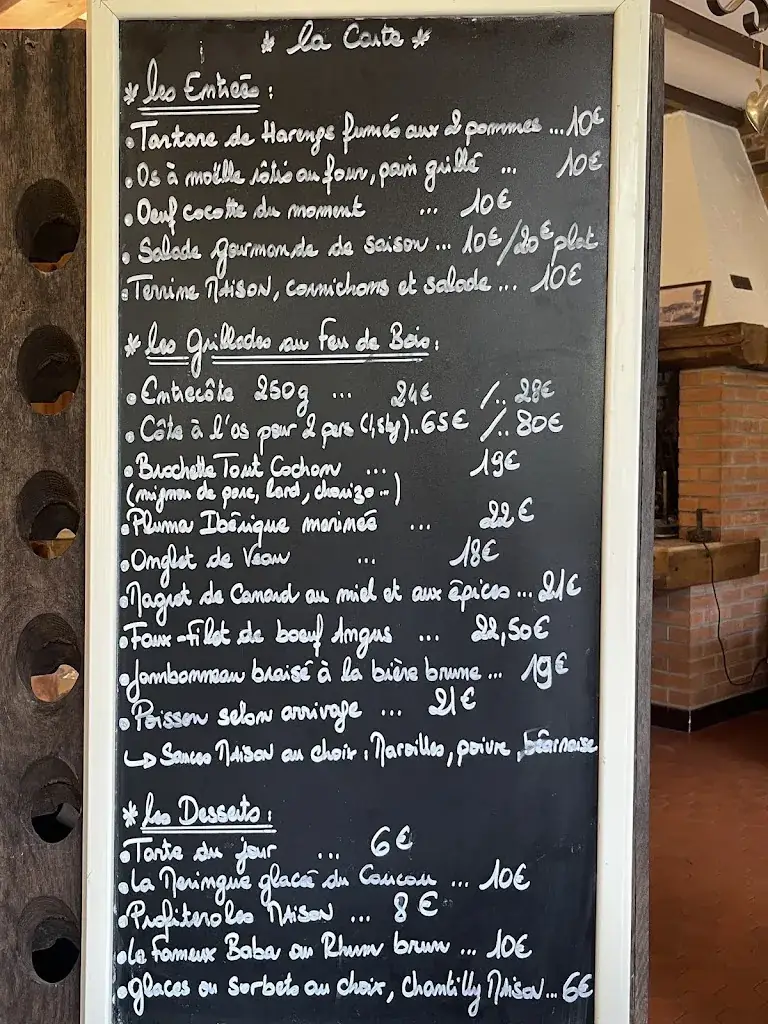 * La Carte *
* Les Entrées :
• Tartare de Harengs fumés aux 2 pommes ... 10€
• Os à moëlle rôtis au four, pain grillé ... 10€
• Oeuf cocotte du moment ... 10€
• Salade gourmande de saison ... 10€/20€ plat
• Terrine MAISON, cornichons et salade ... 10€
* Les Grillades au Feu de Bois :
• Entrecôte 250g ... 24€ /.. 28€
• Côte à l'os pour 2 pers (1,5kg).. 65€ /.. 80€
• Brochette Tout Cochon ... 19€
(mignon de porc, lard, chorizo ...)
• Pluma Ibérique marinée ... 22€
• Onglet de Veau ... 18€
• Magret de Canard au miel et aux épices ... 21€
• Faux-Filet de boeuf Angus ... 22,50€
• Jambonneau braisé à la bière brune ... 19€
• Poisson selon arrivage ... 21€
↳ Sauces MAISON au choix : Maroilles, poivre, béarnaise
* Les Desserts :
• Tarte du jour ... 6€
• La Meringue glacée du Coucou ... 10€
• Profiteroles MAISON ... 8€
• Le Fameux Baba au Rhum brun ... 10€
• Glaces ou sorbets au choix, Chantilly MAISON ... 6€